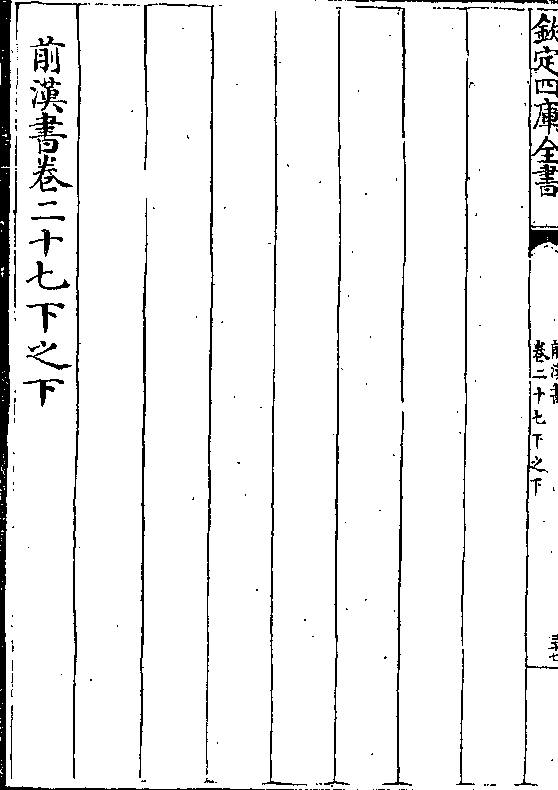 欽定四庫全書
前漢書
卷二十七下之下
前漢書卷二十七下之下